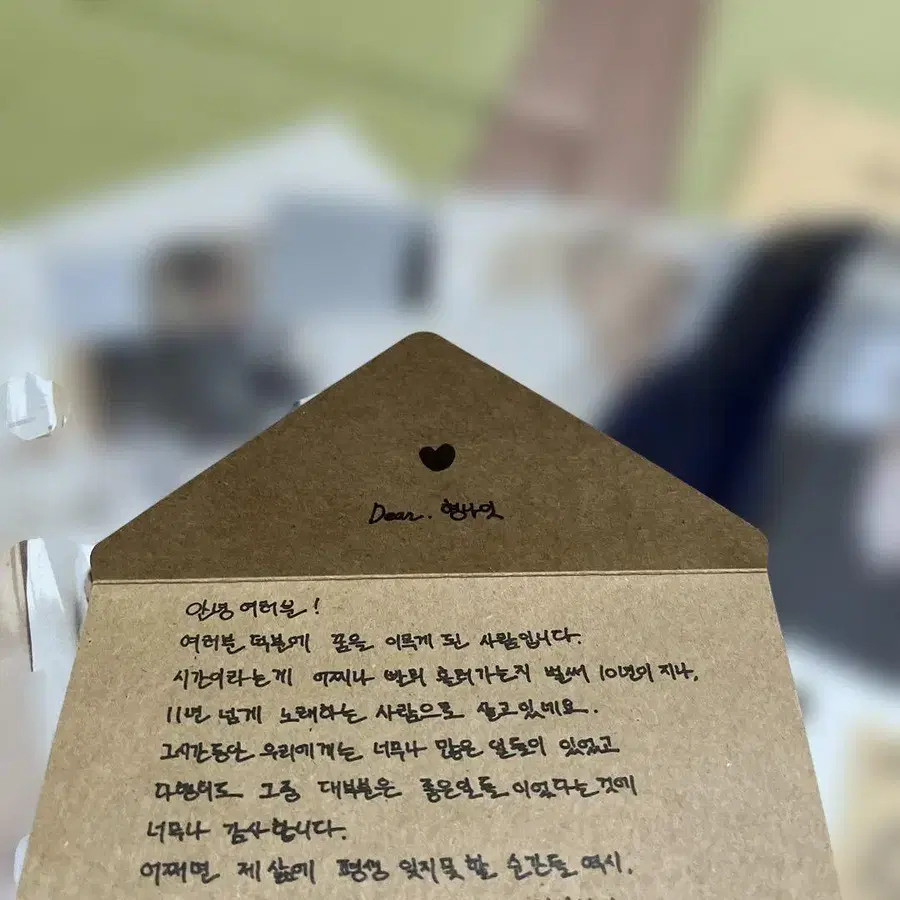 Dear. 형나잇
안녕 여러분!
여러분 덕분에 꿈을 이루게 된 사람입니다.
시간이라는게 어찌나 빨리 흘러가는지 벌써 10년이 지나,
11년 넘게 노래하는 사람으로 살고있네요.
그시간동안 우리에게는 너무나 많은 일들이 있었고
다행히도 그중 대부분은 좋은일들이었다는것에
너무나 감사합니다.
어쩌면 제 삶에 평생 잊지못할 순간들 역시,